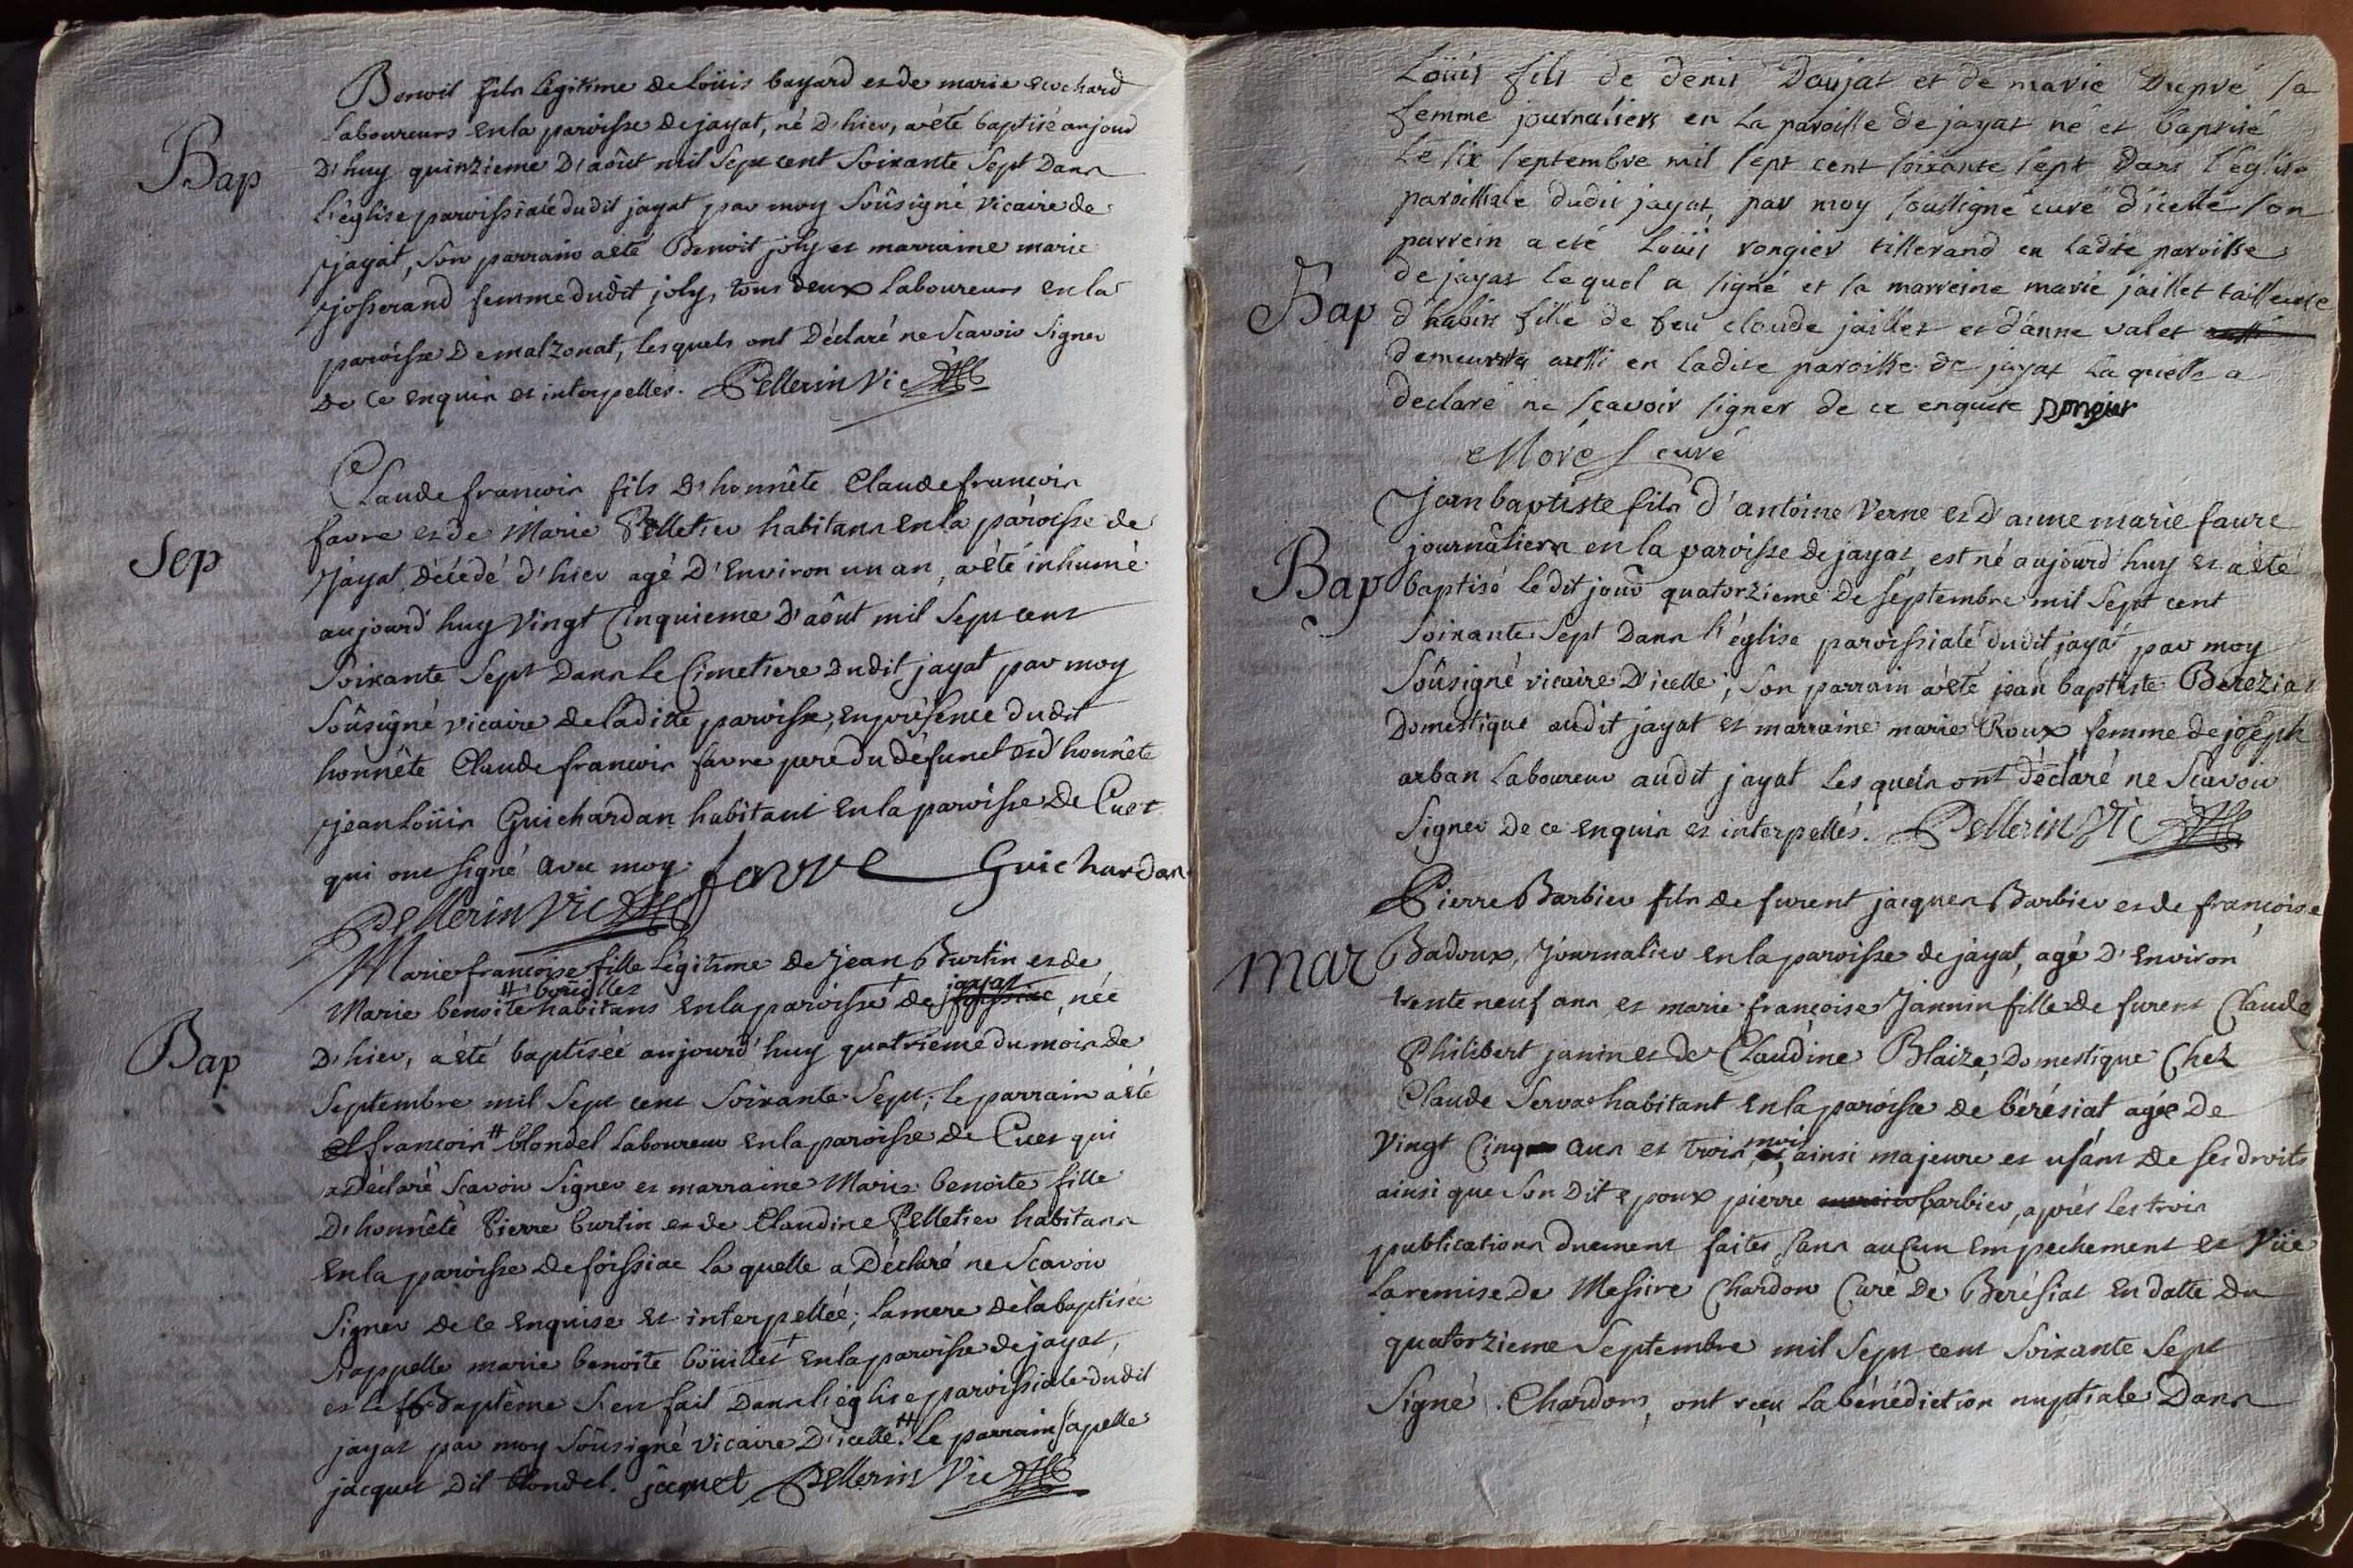 Bap
Benoit fils légitime de Loüis bayard et de marie
Laboureurs en la paroisse de jayat, né d'hier, a été baptisé aujourd
d'huy quinzieme d'aôut mil sept cent soixante sept dans
l'église paroissiale dudit jayat par moy soûsigné vicaire de
jayat, son parrain a été Benoit joly et marraine marie
josserand femme dudit joly, tous deux laboureurs en la
paroisse de malzonat, lesquels ont déclaré ne scavoir signer
de ce enquis et interpellés. Pellerin Vic
Sep
Claude francois fils d'honnête Claude francois
favre et de Marie Pelletier habitans en la paroisse de
Jayat, décédé d'hier agé d'environ un an, a été inhumé
aujourd'huy vingt cinquieme d'aôut mil sept cent
soixante sept dans le Cimetiere dudit jayat par moy
soûsigné vicaire de ladite paroisse, en présence dudit
honnête Claude francois favre pere du défunct et d'honnête
jean Loüis Guichardan habitant en la paroisse de Cuet
qui ont signé avec moy. favre Guichardan
Pellerin Vic
Bap
Marie françoise fille légitime de Jean Burtin et de
Marie benoite habitans en la paroisse de jayat née
d'hier, a été baptisée aujourd'huy quatrieme du mois de
Septembre mil sept cent soixante sept; le parrain a été
francois # blondel laboureur en la paroisse de Cuet qui
a déclaré scavoir signer et marraine Marie benoite fille
d'honnête Pierre burtin et de Claudine Pelletier habitans
en la paroisse de foissiac laquelle a déclaré ne scavoir
signer de ce enquise et interpellée; la mere de la baptisée
s'appelle marie benoite boüillet en la paroisse de jayat,
et le Baptème s'en fait dans l'église paroissiale dudit
jayat par moy soûsigné vicaire d'icelle. # Le parrain s'apelle
jacquet dit blondel. jaquet Pellerin Vic
Bap
Loüis fils de denis Doujat et de marie Dupré sa
femme journaliers en la paroisse de jayat né et baptisé
le six septembre mil sept cent soixante sept dans l'église
paroissiale dudit jayat par moy soussigné curé d'icelle son
parrein a eté Loüis rongier tisserand en ladite paroisse
de jayat lequel a signé et sa marreine marie jaillet tailleuse
d'habits fille de feu claude jaillet et d'anne valet
demeurant aussi en ladite paroisse de jayat laquelle a
declaré ne sçavoir signer de ce enquise rongier
Morel curé
Bap
Jean baptiste fils d'antoine Verne et d'anne marie faure
journâliers en la paroisse de jayat, est né aujourd'huy et a été
baptisé ledit jour quatorzieme de septembre mil sept cent
soixante sept dans l'église paroissiale dudit jayat par moy
soûsigné vicaire d'icelle, son parrain a été jean baptiste Bereziat
domestique audit jayat et marraine marie Roux femme de joseph
arban laboureur audit jayat lesquels ont déclaré ne scavoir
signer de ce enquis et interpellés. Pellerin Vic
mar
Pierre Barbier fils de furent jacques Barbier et de françoise
Badoux, Journalier en la paroisse de jayat, agé d'environ
trente neuf ans, et marie françoise Jannin fille de furent Claude
Philibert janin et de Claudine Blaize, domestique chez
Claude Servas habitant en la paroisse de bérésiat agée de
vingt cinq ans et trois mois, ainsi majeure et usant de ses droits
ainsi que son dit epoux pierre barbier, aprés les trois
publications duement faites sans aucun empechement et vüe
la remise de Messire Chardon Curé de Berésiat en datte du
quatorzieme Septembre mil sept cent soixante sept
Signé. Chardon, ont reçu la bénédiction nuptiale dans